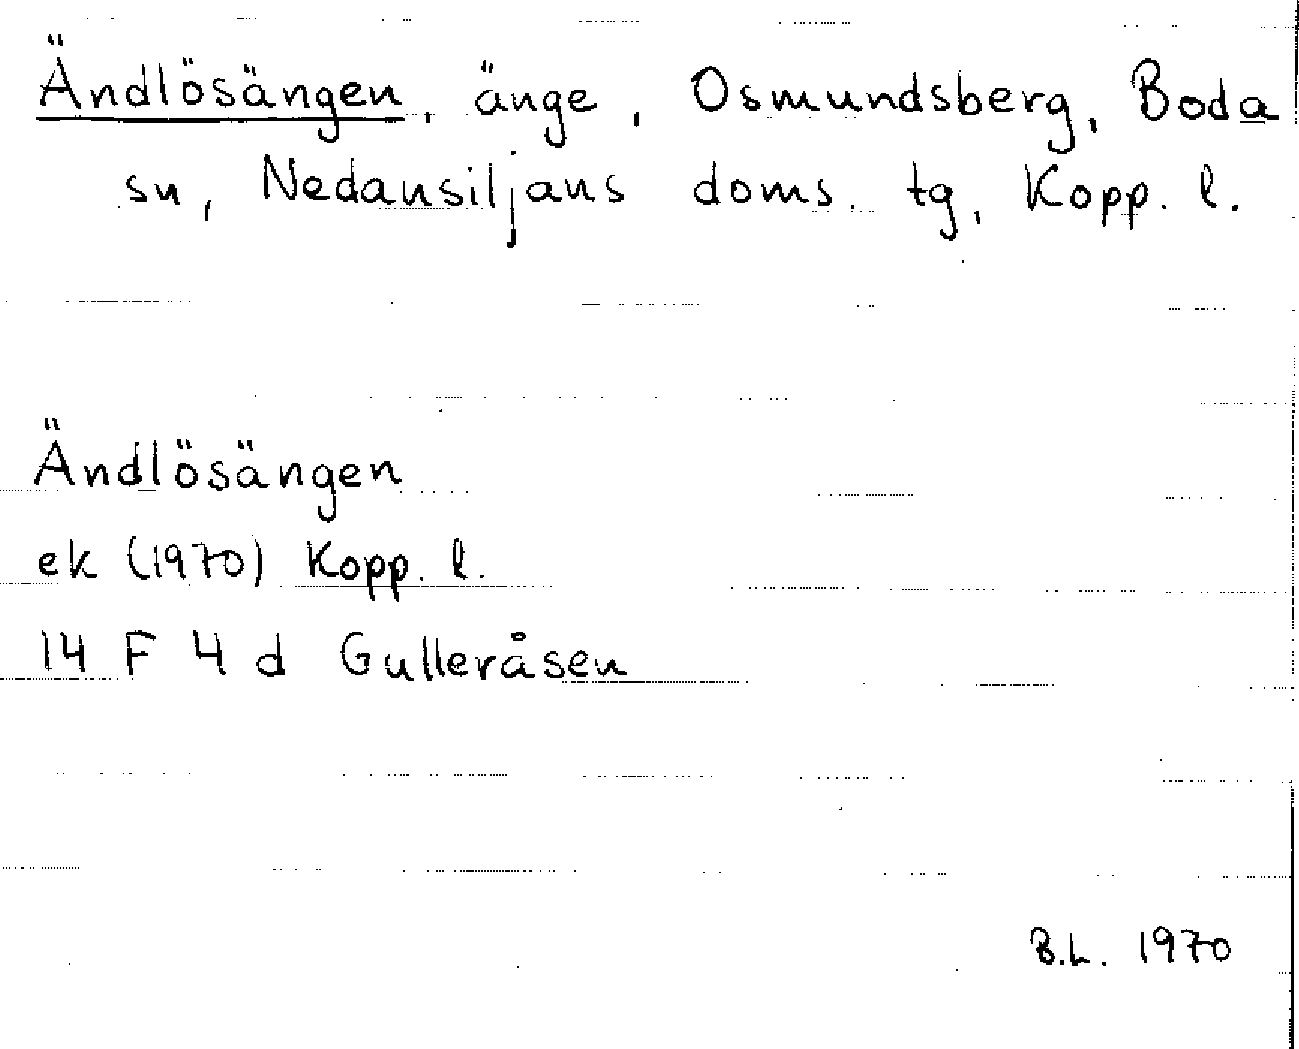 Ändlösängen, änge, Osmundsberg, Boda
sn, Nedansiljans doms. tg, Kopp. l.
Ändlösängen
ek (1970) Kopp. l.
14 F 4 d Gulleråsen
B.L. 1970